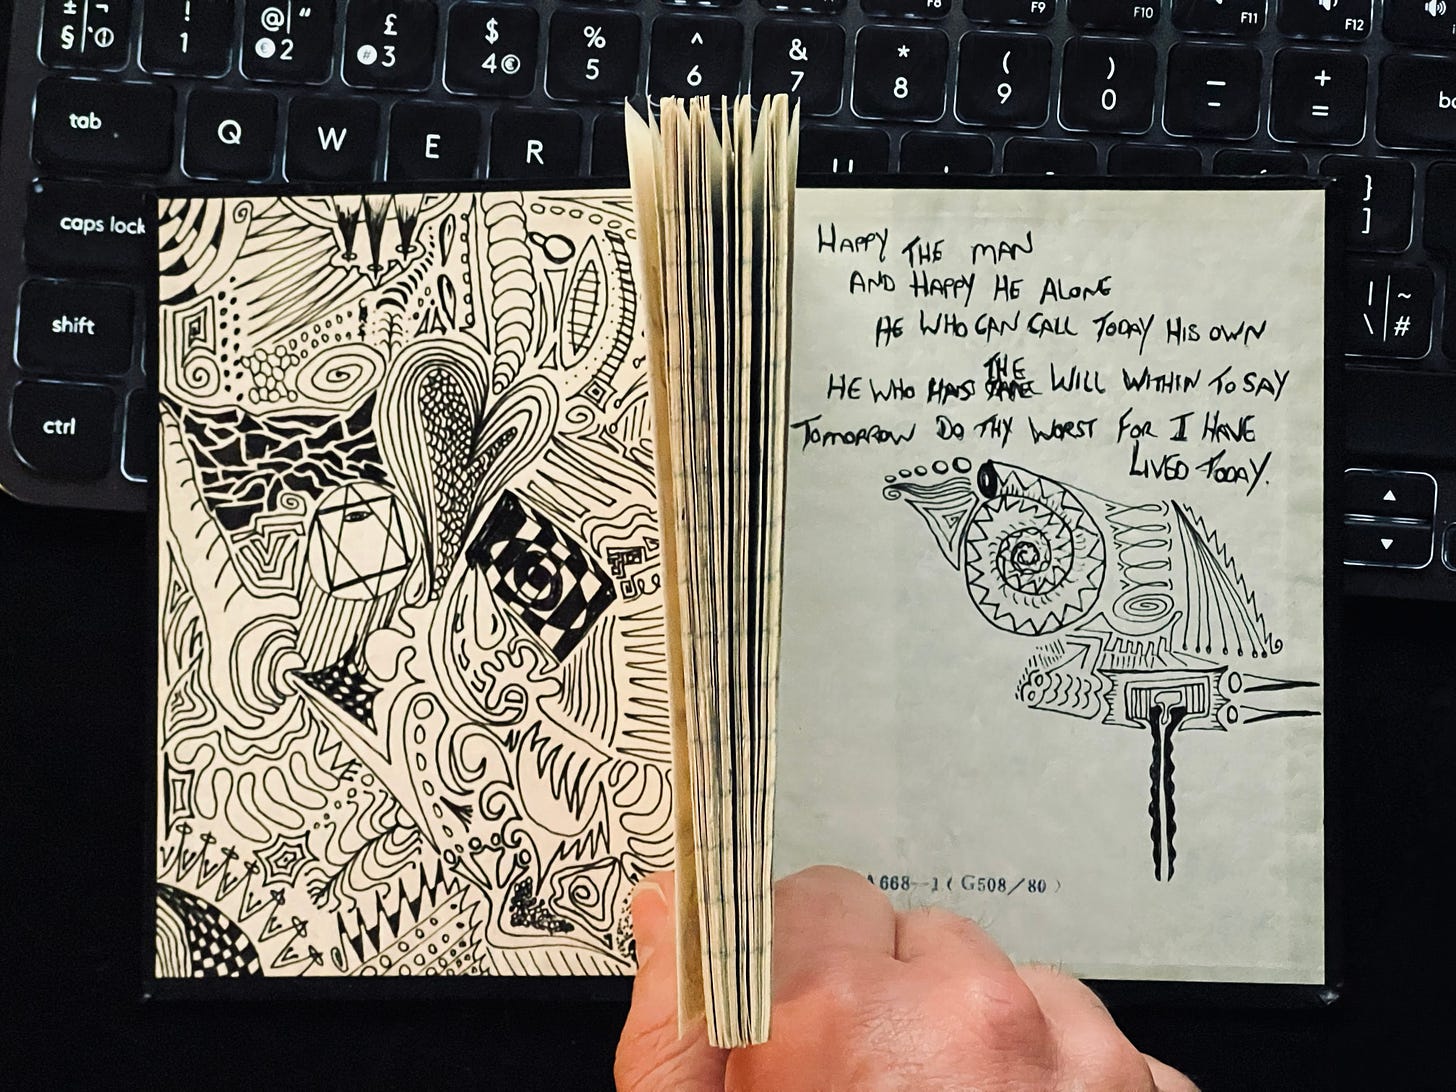 ± ¬ ! @ " £ $ % ^ & * ( ) — +
§ 1 € 2 # 3 4 € 5 6 7 8 9 0 - =
F8 F9 F10 F11 F12
tab Q W E R }
]
caps lock
shift | ~
\ #
ctrl
HAPPY THE MAN
AND HAPPY HE ALONE
HE WHO CAN CALL TODAY HIS OWN
THE
HE WHO HAS WILL WITHIN TO SAY
TOMORROW DO THY WORST FOR I HAVE
LIVED TODAY.
668-1 (G508/80)